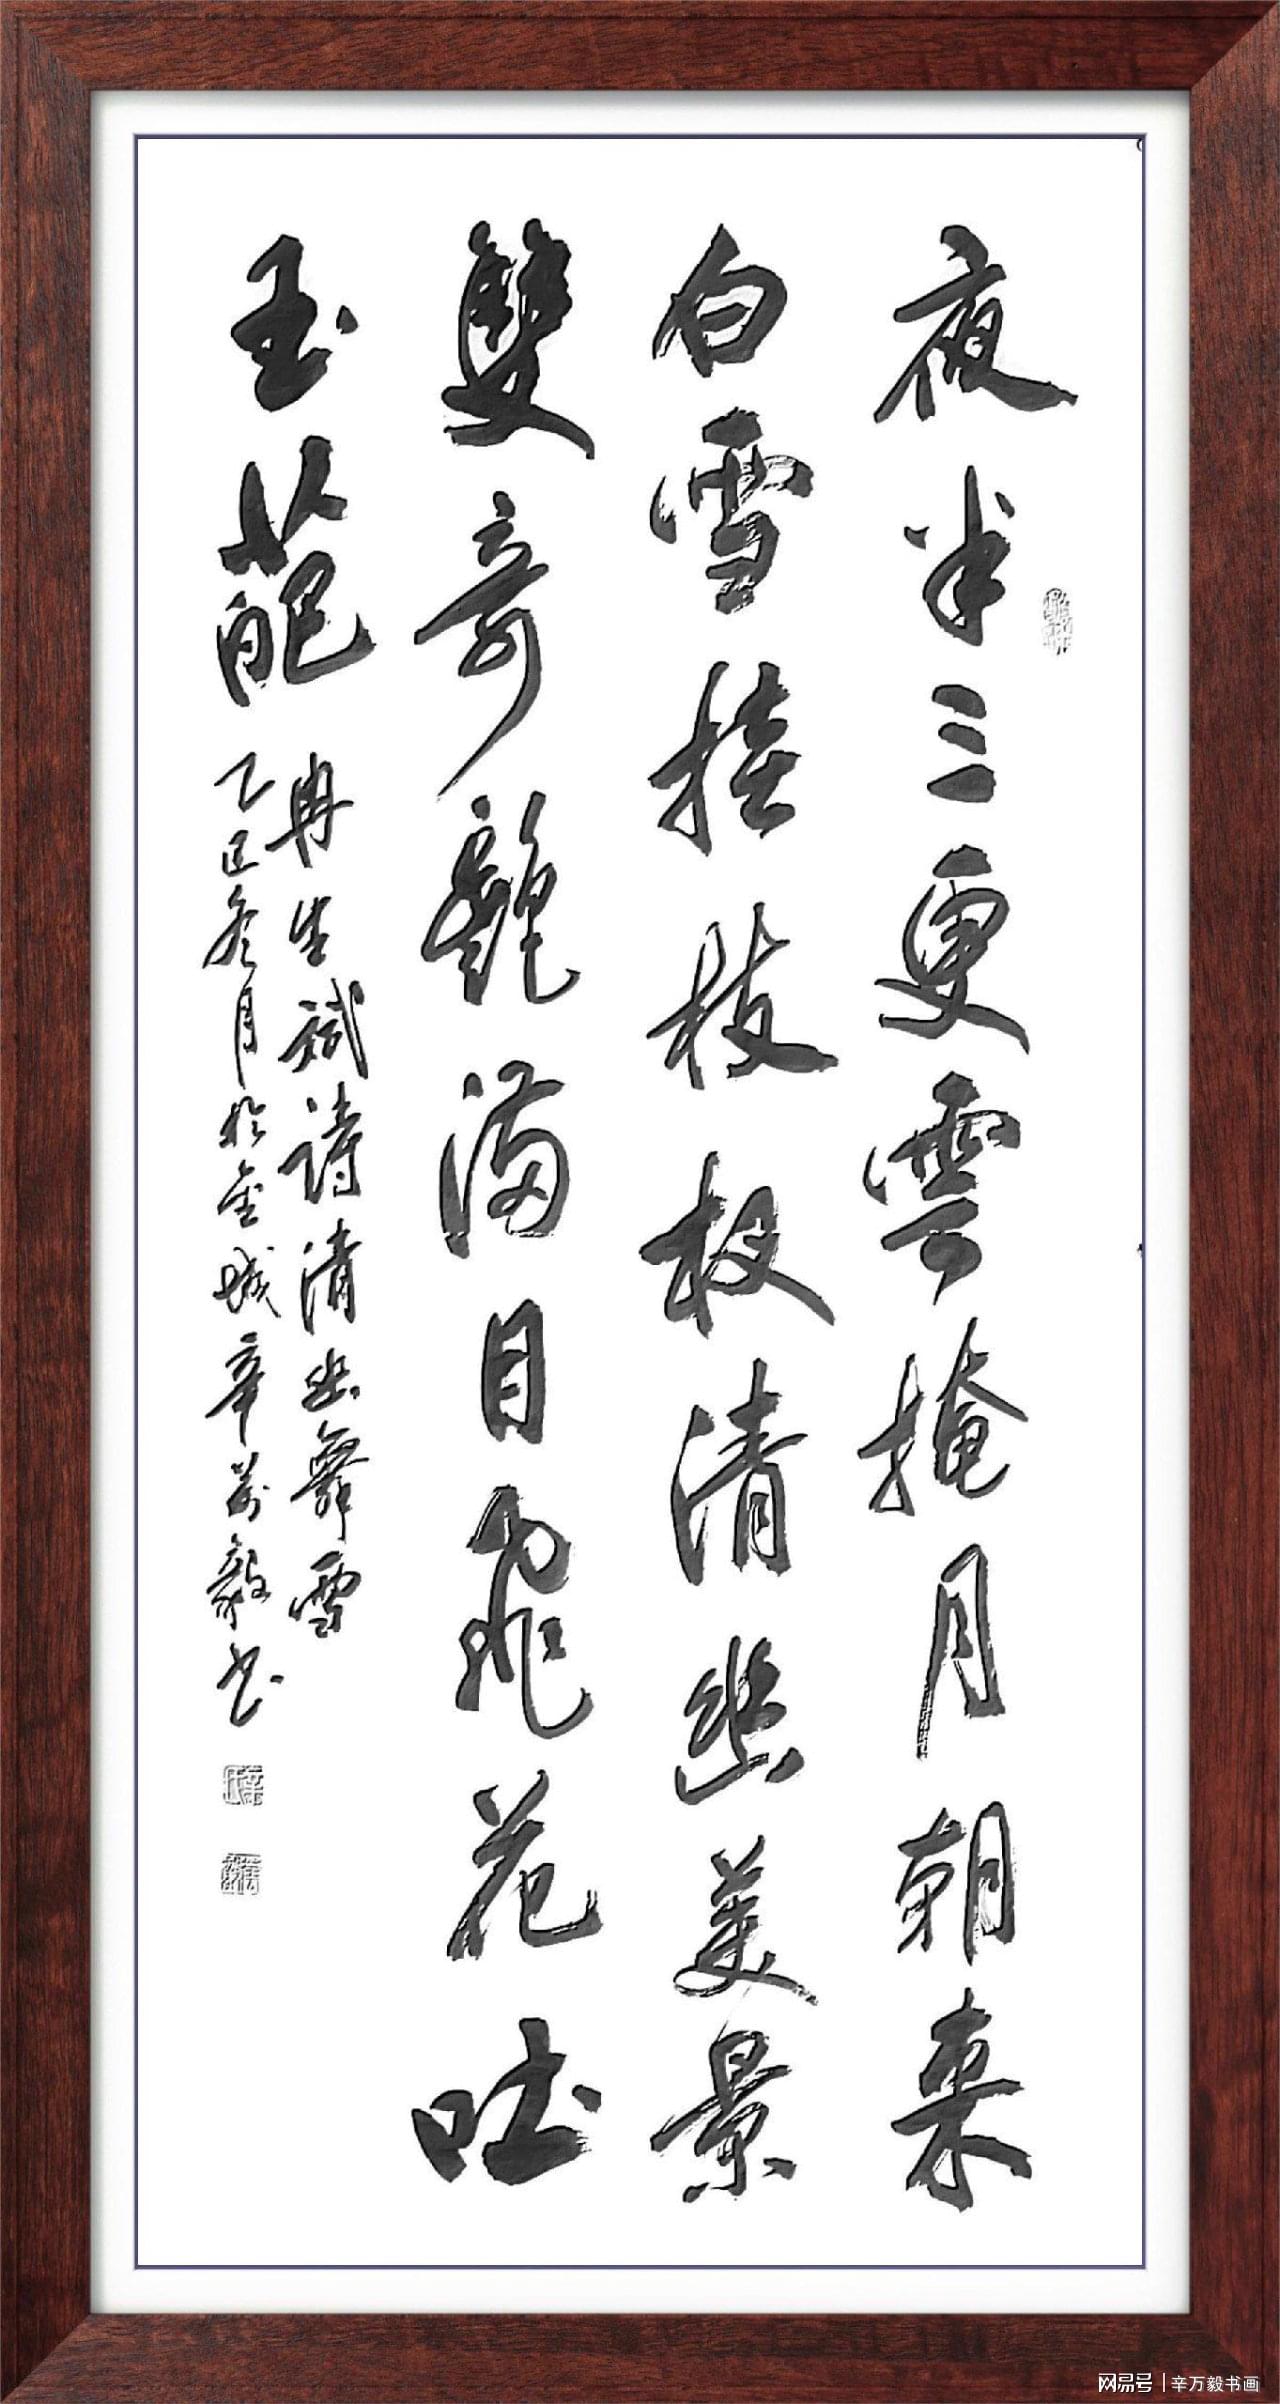 夜半三更雲掩月朝来
白雪挂枝杈清幽美景
雙奇艷滿目飛花吐
玉葩
冉生斌詩清幽舞雪
乙巳冬月於金城辛萬毅书
网易号 | 辛万毅书画